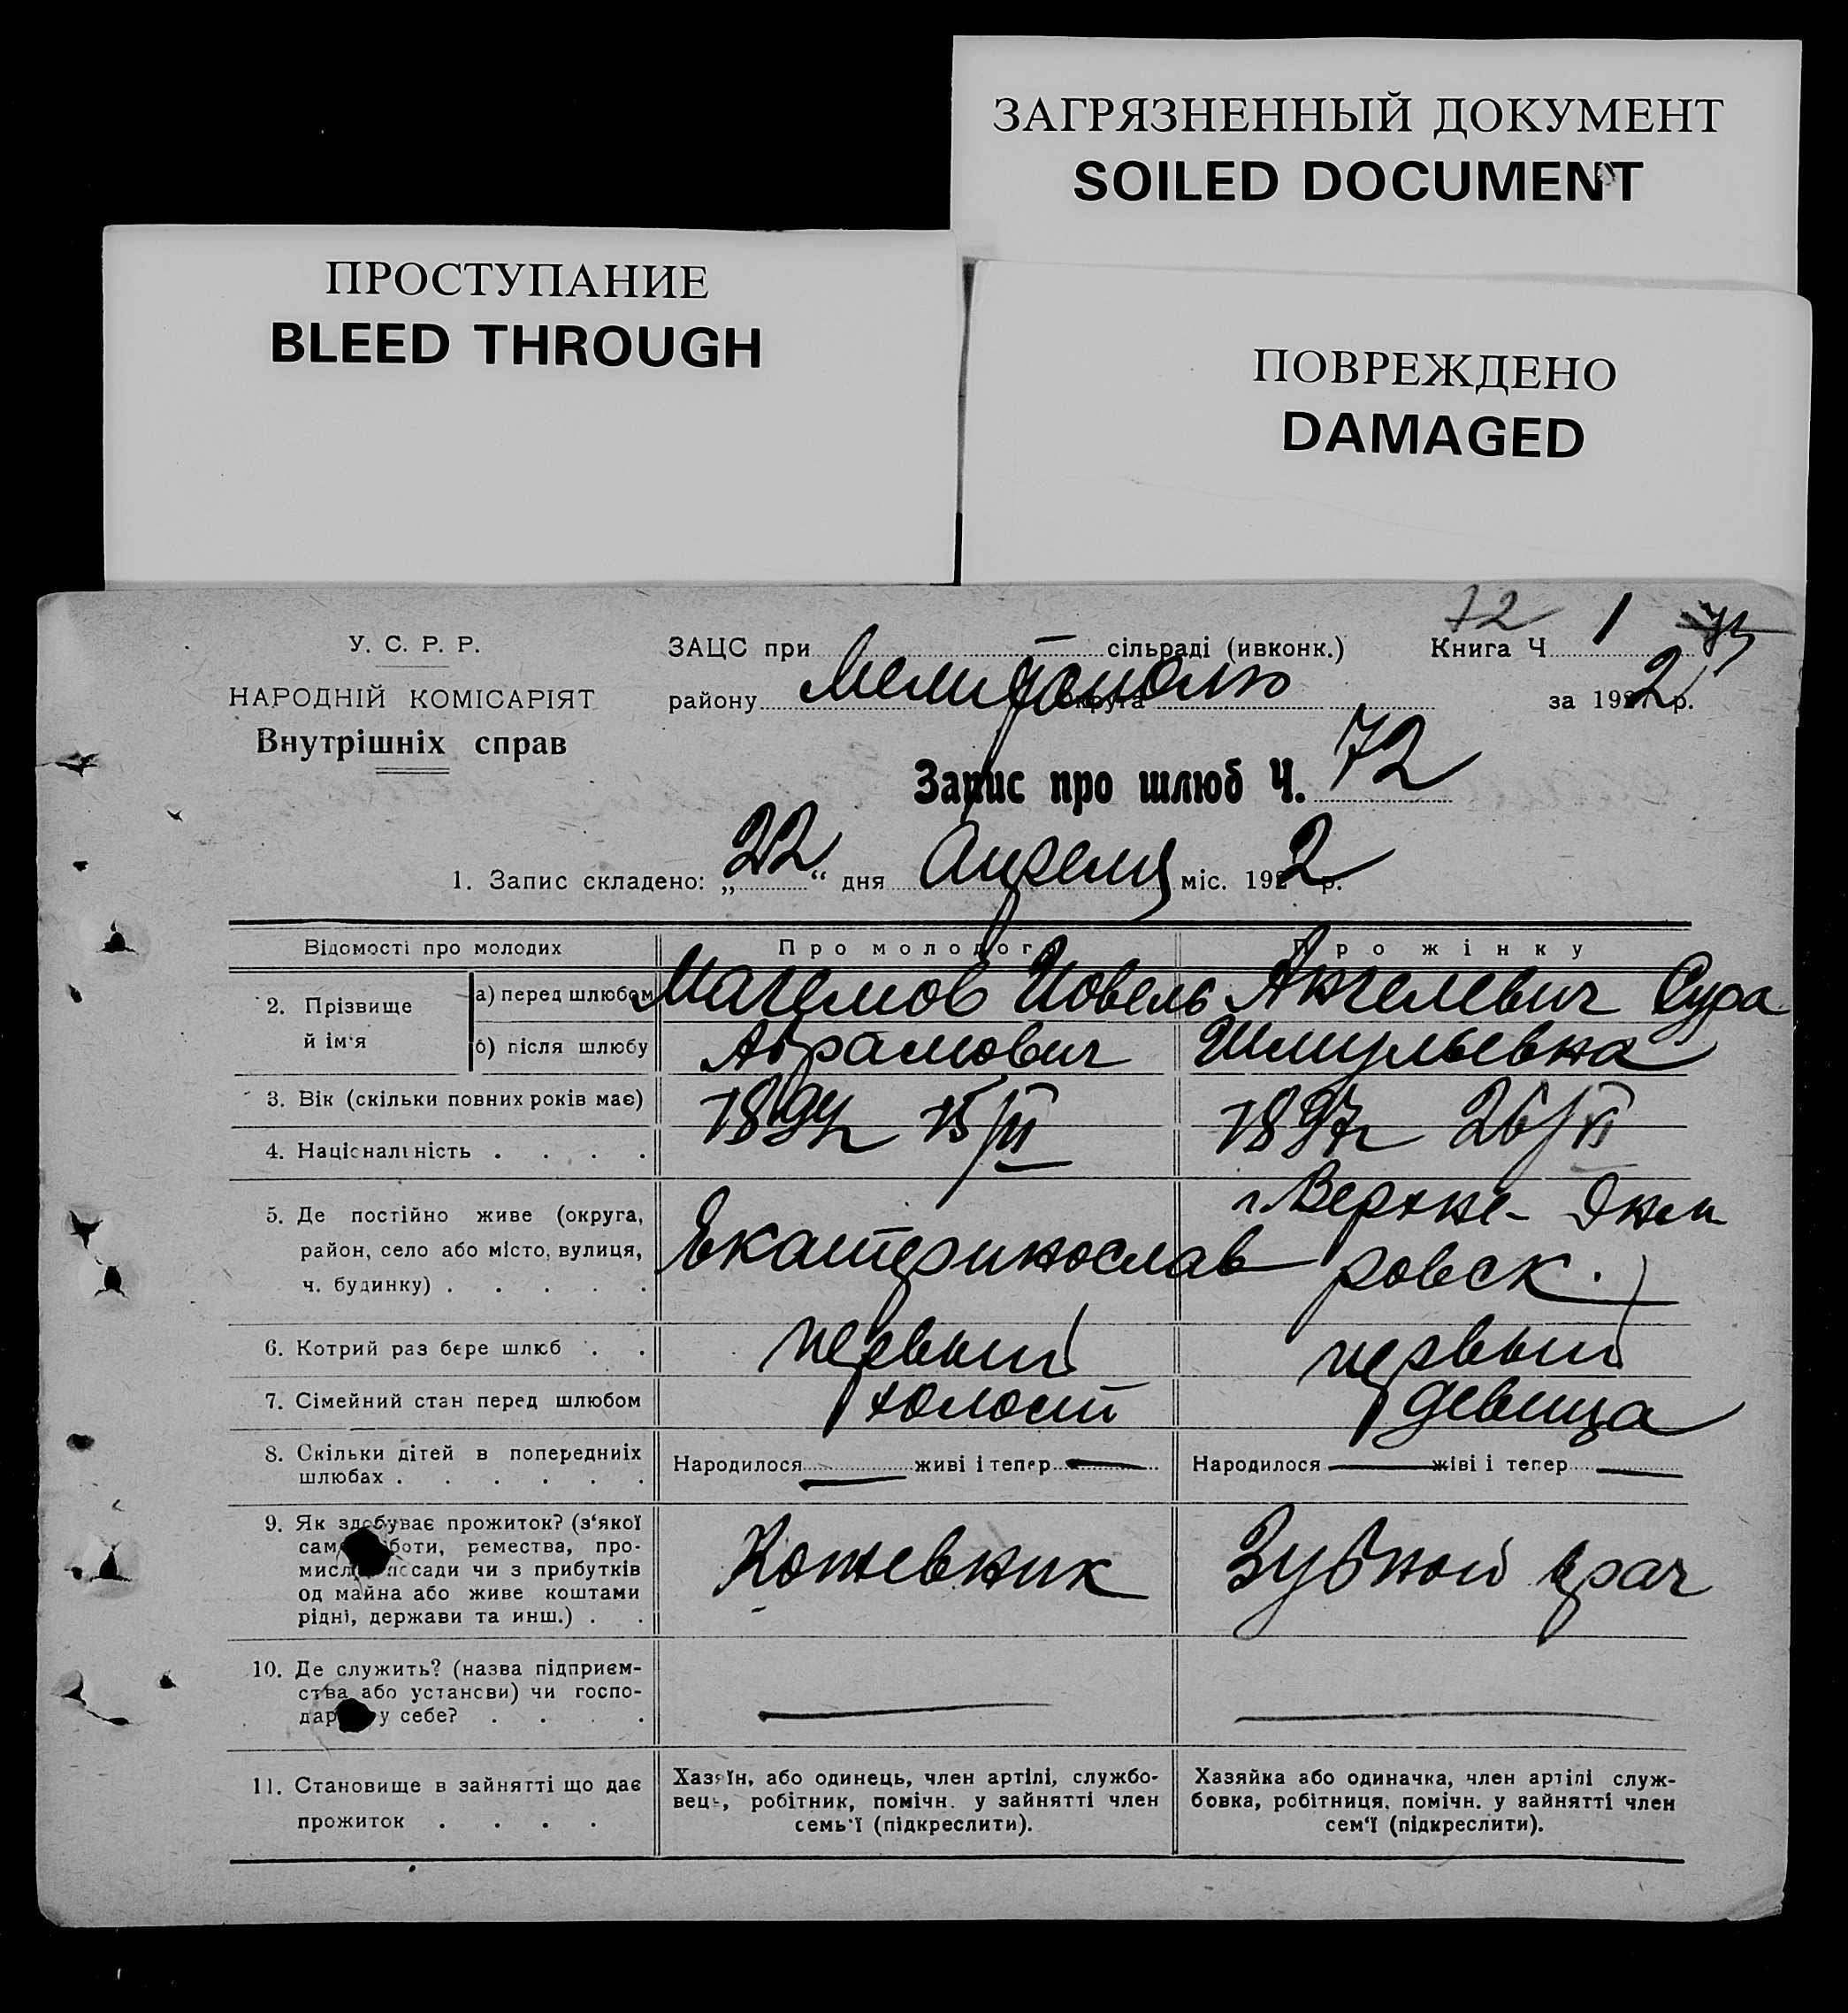 ЗАГРЯЗНЕННЫЙ ДОКУМЕНТ
SOILED DOCUMENT
ПРОСТУПАНИЕ
BLEED THROUGH
ПОВРЕЖДЕНО
DAMAGED
72
У. С. Р. Р.
НАРОДНІЙ КОМІСАРІЯТ
Внутрішніх справ
ЗАЦС при сільраді (ивконк.) Книга Ч 1
району Мелитополю округа за 1922 р.
Запис про шлюб Ч. 72
1. Запис складено: „22“ дня Апреля міс. 1922 р.
Відомості про молодих
Про молодого
Про жінку
2. Прізвище й ім'я
а) перед шлюбом
Иовель
Ангелевич Сура
б) після шлюбу
Абрамович
Шмульевна
3. Вік (скільки повних років має)
4. Національність
1897г 26/VI
5. Де постійно живе (округа,
район, село або місто, вулиця,
ч. будинку)
Екатеринослав
г. Верхне-Днеп
ровск.
6. Котрий раз бере шлюб
первый
первый
7. Сімейний стан перед шлюбом
холост
девица
8. Скільки дітей в попередніх
шлюбах
Народилося живі і тепер
Народилося живі і тепер
9. Як здобуває прожиток? (з'якої
роботи, ремества, про-
посади чи з прибутків
од майна або живе коштами
рідні, держави та инш.)
Кожевник
Зубной врач
10. Де служить? (назва підприєм-
ства або установи) чи госпо-
у себе?
11. Становище в зайнятті що дає
прожиток
Хазяїн, або одинець, член артілі, службо-
вець, робітник, помічн. у зайнятті член
семь'ї (підкреслити).
Хазяйка або одиначка, член артілі служ-
бовка, робітниця, помічн. у зайнятті член
сем'ї (підкреслити).